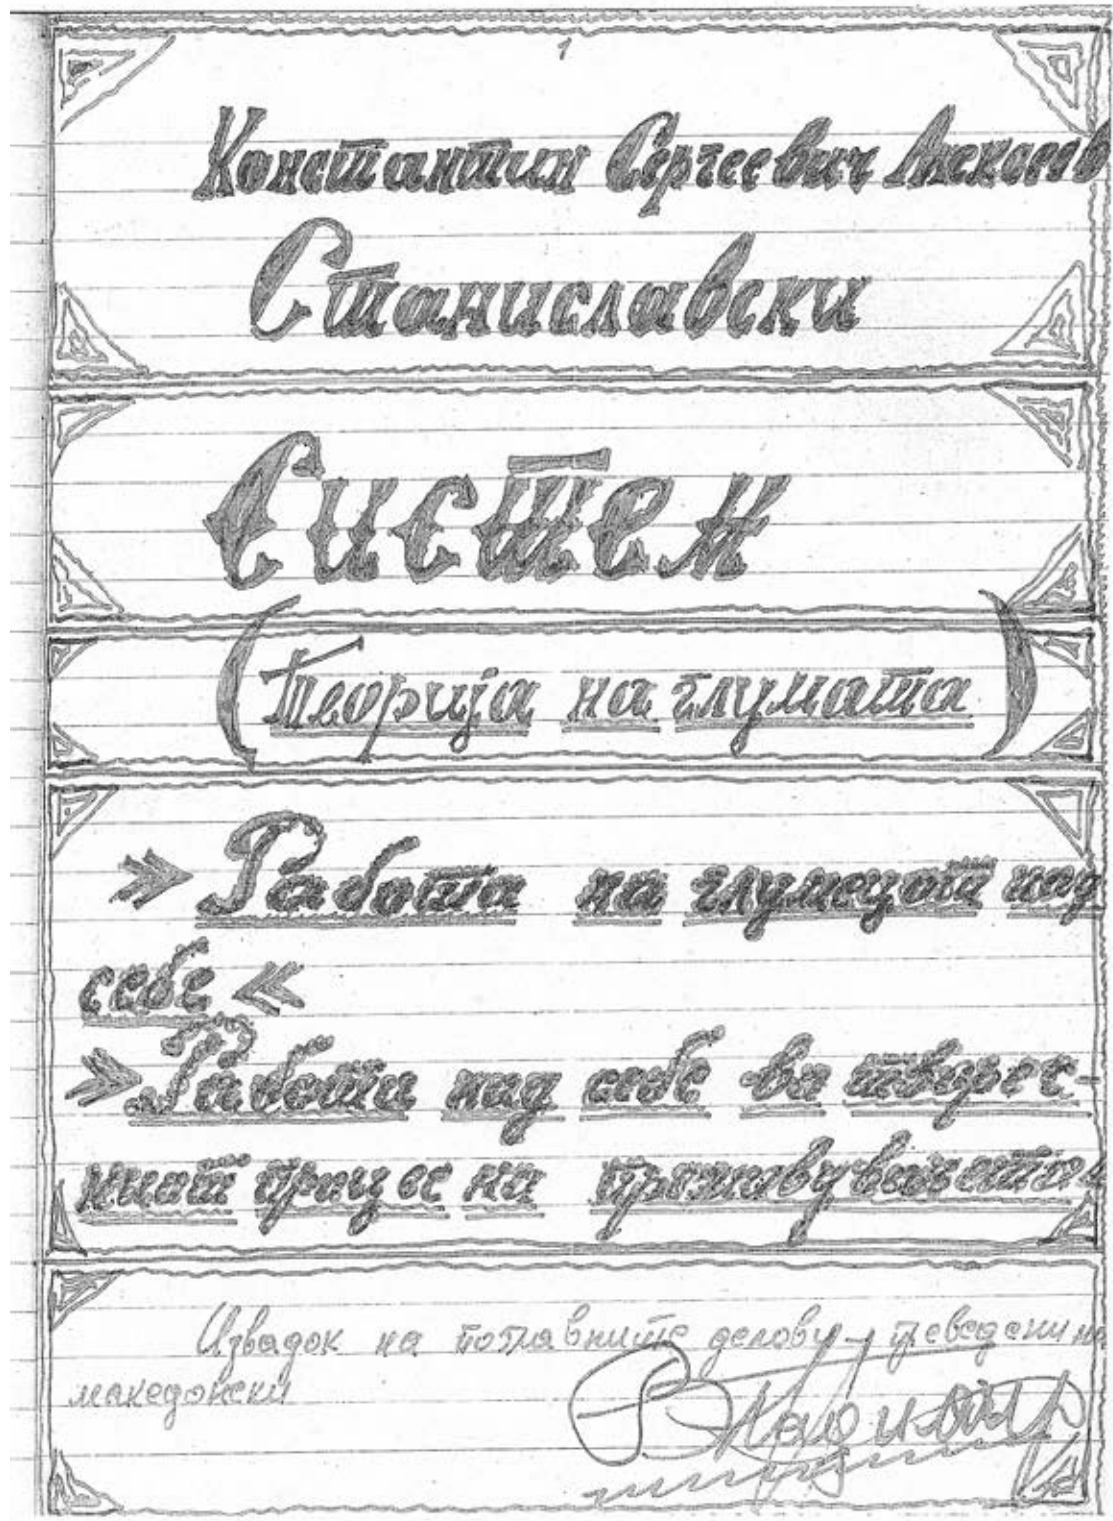 1
Константин Сергеевич Алексеев
Станиславски
Систем
(Теорија на глумата)
» Работа на глумецот над
себе «
» Работа над себе во творес-
киот процес на преживувањето
Извадок на поглавните делови - преведени на
македонски